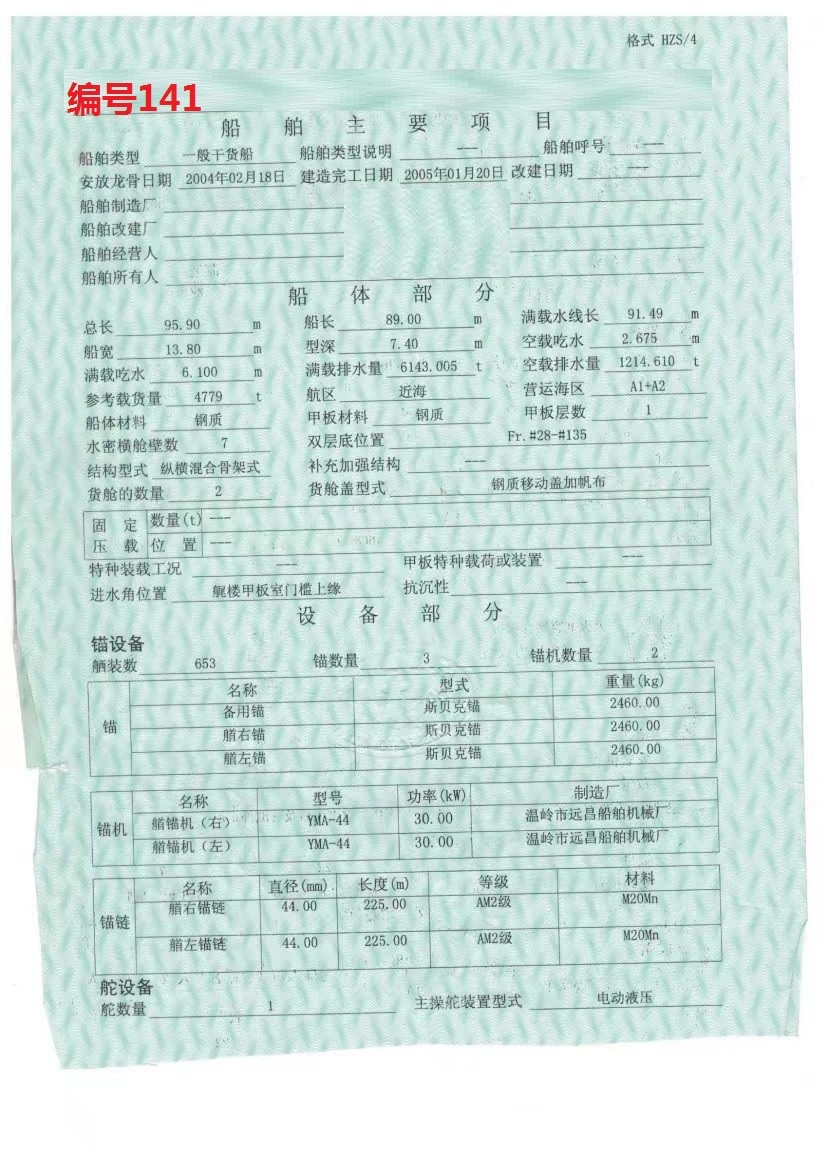 格式 HZS/4
编号141
船 舶 主 要 项 目
船舶类型 一般干货船 船舶类型说明 --- 船舶呼号 ---
安放龙骨日期 2004年02月18日 建造完工日期 2005年01月20日 改建日期 ---
船舶制造厂
船舶改建厂
船舶经营人
船舶所有人
船 体 部 分
总长 95.90 m 船长 89.00 m 满载水线长 91.49 m
船宽 13.80 m 型深 7.40 m 空载吃水 2.675 m
满载吃水 6.100 m 满载排水量 6143.005 t 空载排水量 1214.610 t
参考载货量 4779 t 航区 近海 营运海区 A1+A2
船体材料 钢质 甲板材料 钢质 甲板层数 1
水密横舱壁数 7 双层底位置 Fr.#28-#135
结构型式 纵横混合骨架式 补充加强结构 ---
货舱的数量 2 货舱盖型式 钢质移动盖加帆布
固 定 数量(t) ---
压 载 位 置 ---
特种装载工况 --- 甲板特种载荷或装置 ---
进水角位置 艉楼甲板室门槛上缘 抗沉性 ---
设 备 部 分
锚设备
舾装数 653 锚数量 3 锚机数量 2
名称 型式 重量(kg)
锚
备用锚 斯贝克锚 2460.00
艏右锚 斯贝克锚 2460.00
艏左锚 斯贝克锚 2460.00
名称 型号 功率(kW) 制造厂
锚机
艏锚机（右） YMA-44 30.00 温岭市远昌船舶机械厂
艏锚机（左） YMA-44 30.00 温岭市远昌船舶机械厂
名称 直径(mm) 长度(m) 等级 材料
锚链
艏右锚链 44.00 225.00 AM2级 M20Mn
艏左锚链 44.00 225.00 AM2级 M20Mn
舵设备
舵数量 1 主操舵装置型式 电动液压